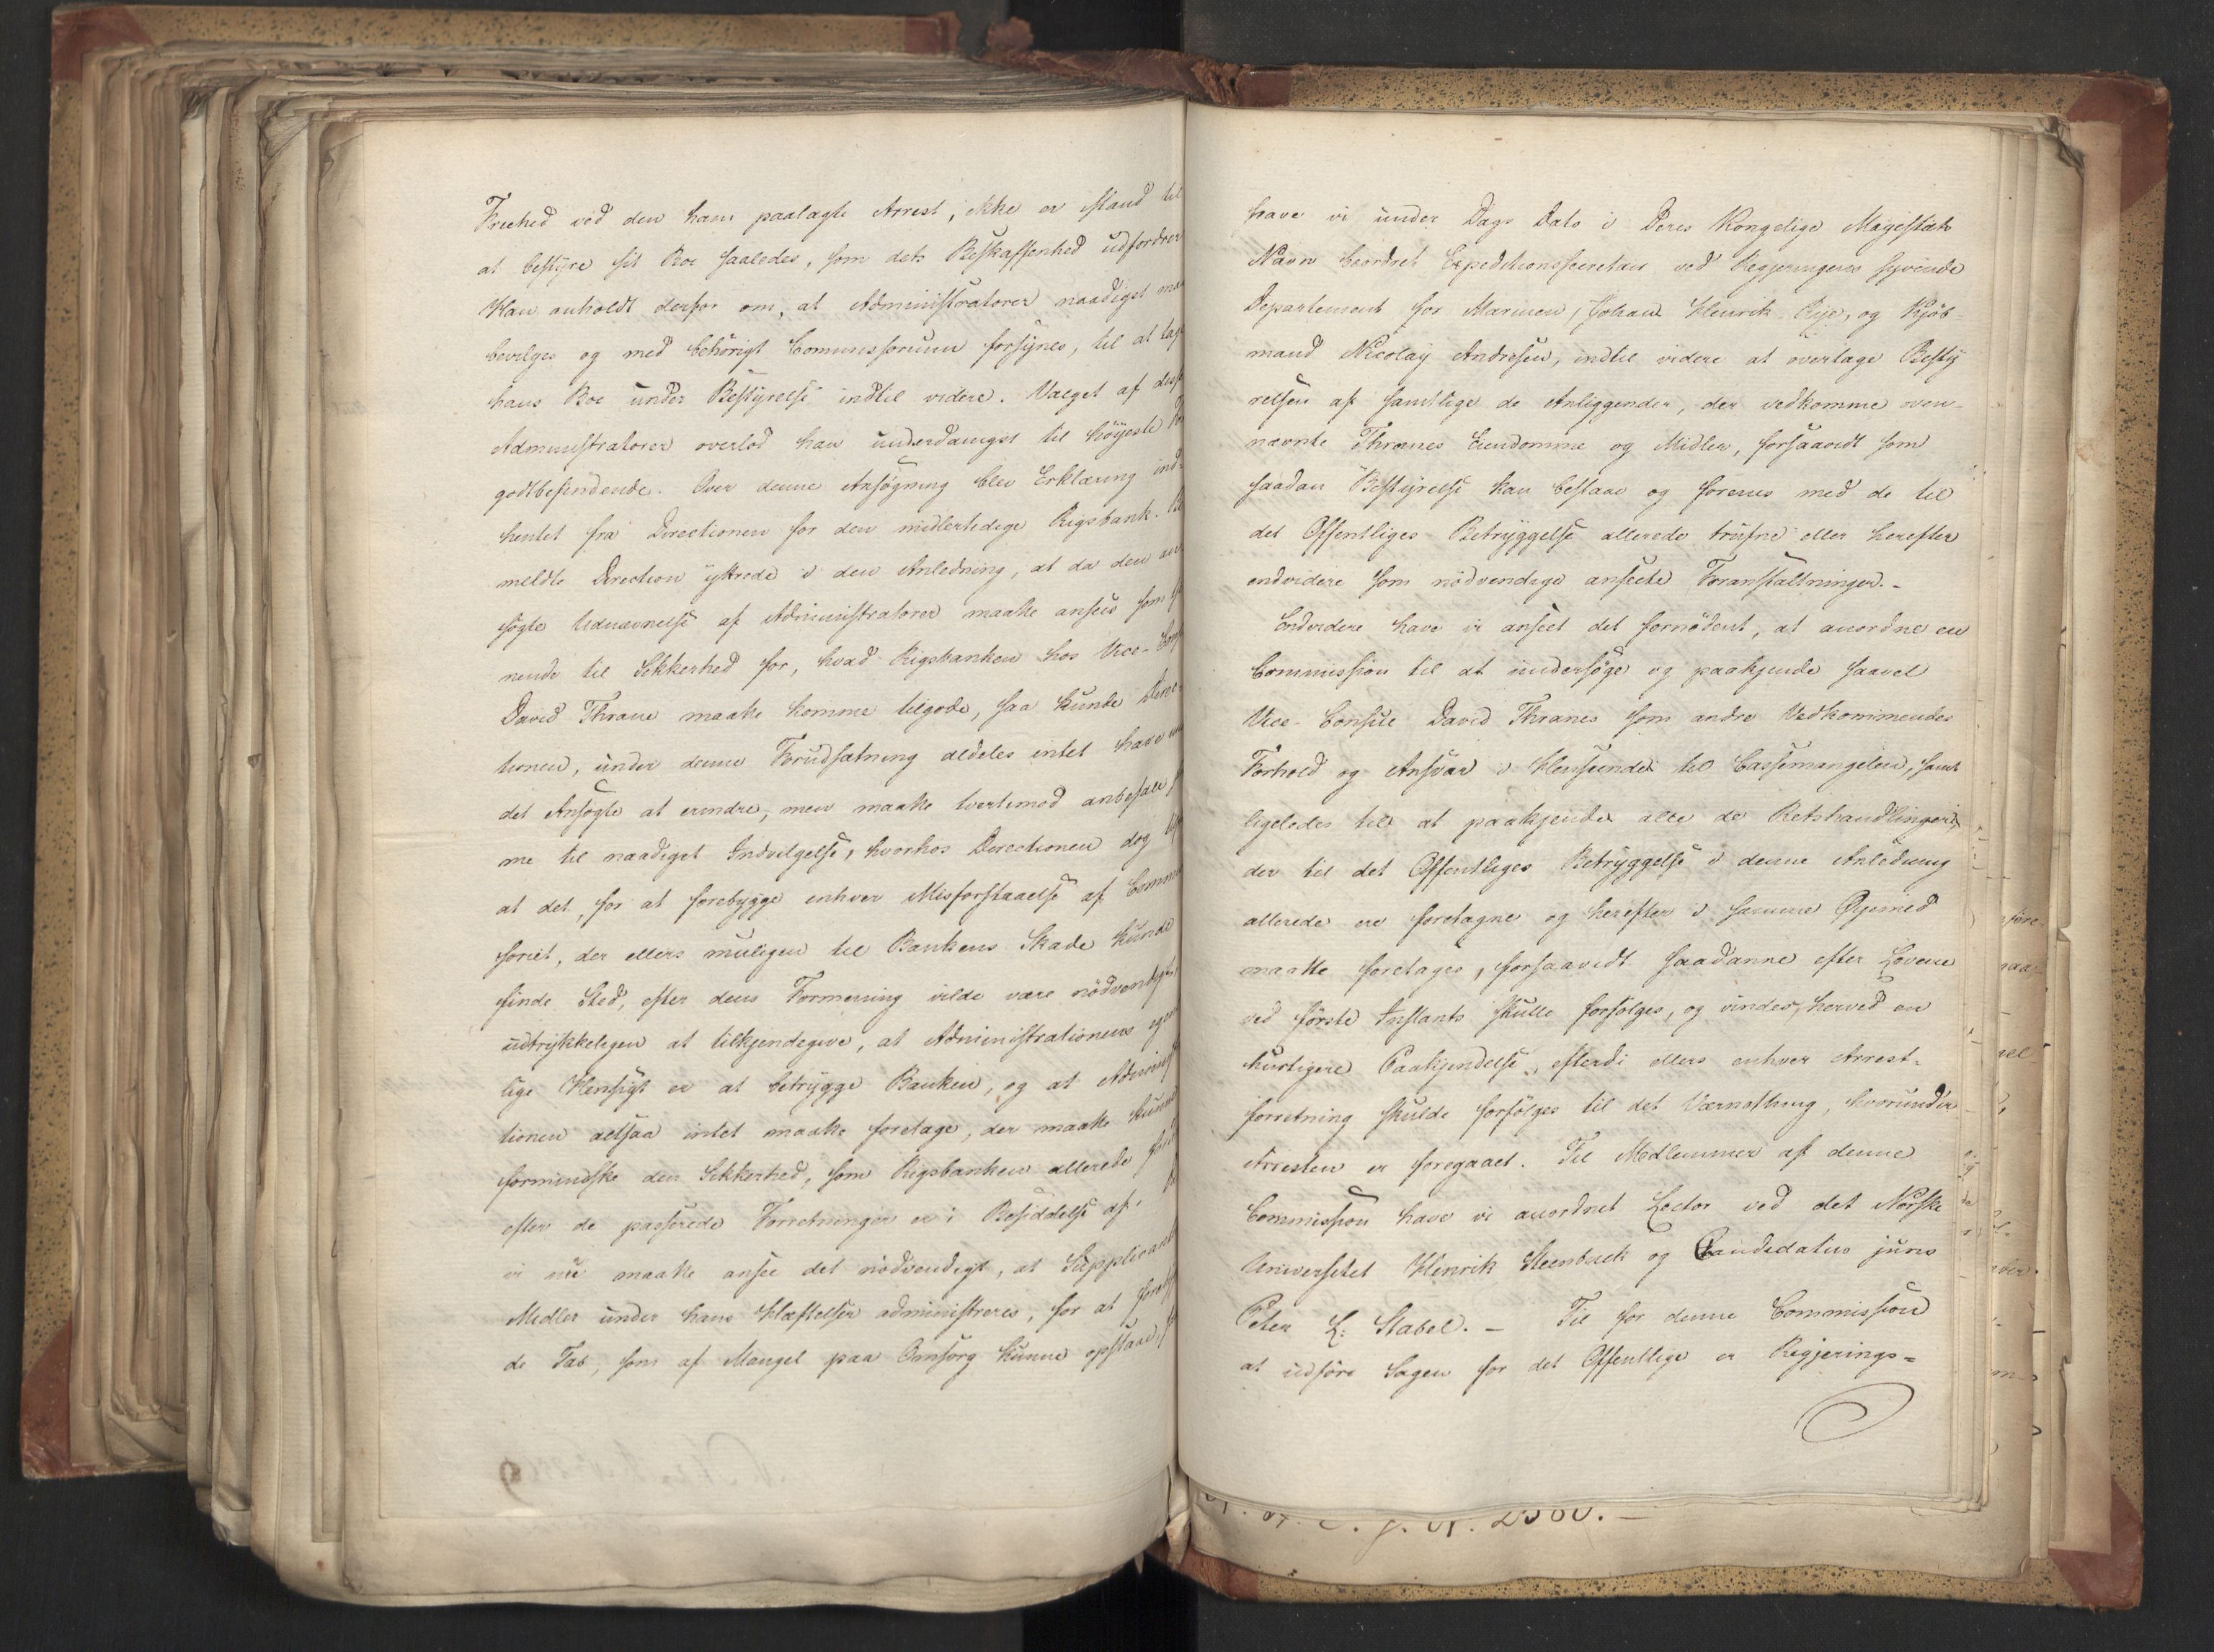 Friehed ved den ham paalagte Arrest, ikke er istand til
at bestyre sit Boe saaledes, som dets Beskaffenhed udfordrer
Han anholdt derfor om, at Administratorer naadigst maa
bevilges og med behörigt Commissorium forsynes, til at tage
hans Boe under Bestyrelse indtil videre. Valget af disse
Administratorer overlod han underdanigst til höyeste
godtbefindende. Over denne Ansøgning blev Erklæring ind-
hentet fra Directionen for den midlertidige Rigsbank.
meldte Direction yttrede i den Anledning, at da den an-
søgte Udnævnelse af Administratorer maatte ansees som
nende til Sikkerhed for, hvad Rigsbanken hos Vice-Consul
David Thrane maatte komme tilgode, saa kunde Direc-
tionen, under denne Forudsætning aldeles intet have
det Ansøgte at erindre, men maatte tvertimod anbefale
me til naadigst Indvilgelse, hvorhos Directionen dog
at det, for at forebygge enhver Misforstaaelse af Commis-
soriet, der ellers muligen til Bankens Skade kunde
finde Sted, efter dens Formening vilde være nödvendigt
udtrykkeligen at tilkjendegive, at Administrationens egent-
lige Hensigt er at betrygge Banken, og at Administra-
tionen altsaa intet maatte foretage, der maatte kunne
formindske den Sikkerhed, som Rigsbanken allerede
efter de passerede Forretninger er i Besiddelse af.
vi nu maatte ansee det nödvendigt, at Supplicantens
Midler under hans Hæftelse administreres, for at
de Tab, som af Mangel paa Omsorg kunne opstaae,
have vi under Dags Dato i Deres Kongelige Mayestæts
Navn beordret Expeditionssecretair ved Regjeringens syvende
Departement for Marinen, Johan Henrik Rye, og Kjöb-
mand Nicolay Andresen, indtil videre at overtage Besty
relsen af samtlige de Anliggender, der vedkomme oven-
nævnte Thranes Eiendomme og Midler, forsaavidt som
saadan Bestyrelse kan bestaae og forenes med de til
det Offentliges Betryggelse allerede trufne eller herefter
endvidere som nödvendige anseete Foranstaltninger.-
Endvidere have vi anseet det fornödent, at anordne en
Commission til at undersöge og paakjende saavel
Vice-Consul David Thranes som andre Vedkommendes
Forhold og Ansvar i Henseende til Cassemangelen, samt
ligeledes til at paakjende alle de Retshandlinger,
der til det Offentliges Betryggelse i denne Anledning
allerede ere foretagne og herefter i samme Øjemed
maatte foretages, forsaavidt saadanne efter Lovene
ved förste Instants skulle forfölges, og vindes herved en
hurtigere Paakjendelse, efterdi ellers enhver Arrest-
forretning skulde forfölges til det Værnething, hvorunder
Arresten er foregaaet. Til Medlemmer af denne
Commission have vi anordnet Lector ved det Norske
Universitet Henrik Steenbuch og Candidatus juris
Peter L: Stabel. - Til for denne Commission
at udföre Sagen for det Offentlige er Regjerings=